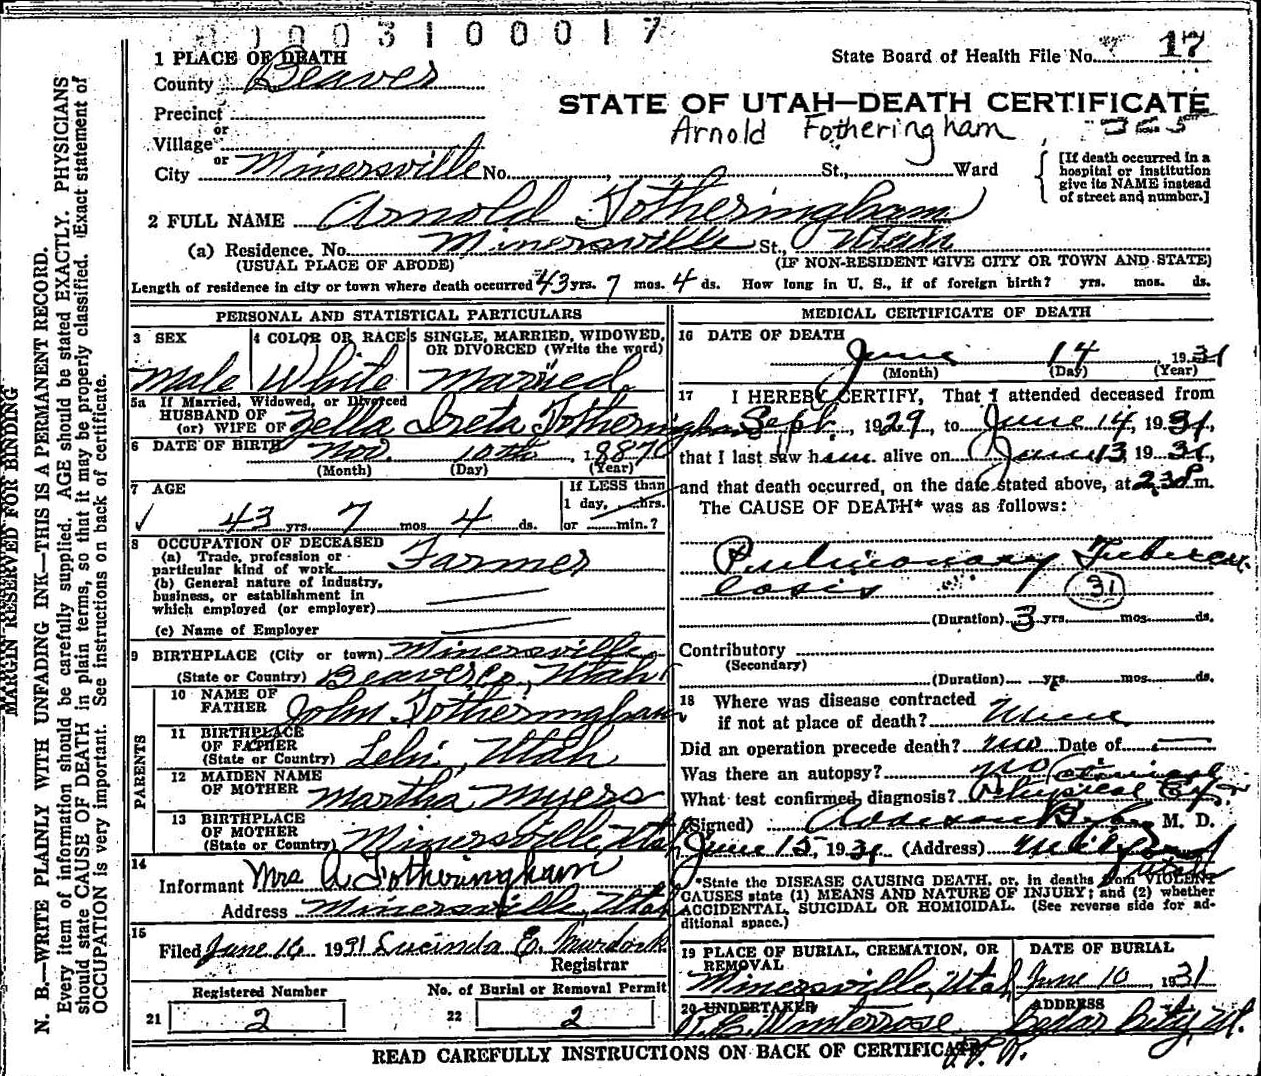 0003100017
1 PLACE OF DEATH
State Board of Health File No. 17
County Beaver
STATE OF UTAH—DEATH CERTIFICATE
Precinct
Arnold Fotheringham
or
Village
or
City Minersville No. , St., Ward
[If death occurred in a hospital or institution give its NAME instead of street and number.]
2 FULL NAME Arnold Fotheringham
(a) Residence, No. Minersville St., Utah
(USUAL PLACE OF ABODE) (IF NON-RESIDENT GIVE CITY OR TOWN AND STATE)
Length of residence in city or town where death occurred 43 yrs. 7 mos. 4 ds. How long in U. S., if of foreign birth? yrs. mos. ds.
PERSONAL AND STATISTICAL PARTICULARS
3 SEX
Male
4 COLOR OR RACE
White
5 SINGLE, MARRIED, WIDOWED, OR DIVORCED (Write the word)
Married
5a If Married, Widowed, or Divorced
HUSBAND OF
(or) WIFE OF Zella Fotheringham
6 DATE OF BIRTH Nov. 10th 1887
(Month) (Day) (Year)
7 AGE
43 yrs. 7 mos. 4 ds.
If LESS than
1 day, hrs.
or min.?
8 OCCUPATION OF DECEASED
(a) Trade, profession or
particular kind of work Farmer
(b) General nature of industry,
business, or establishment in
which employed (or employer)
(c) Name of Employer
9 BIRTHPLACE (City or town) Minersville
(State or Country) Beaver Co., Utah
PARENTS
10 NAME OF
FATHER John Fotheringham
11 BIRTHPLACE
OF FATHER
(State or Country) Lehi, Utah
12 MAIDEN NAME
OF MOTHER Martha Myers
13 BIRTHPLACE
OF MOTHER
(State or Country) Minersville, Utah
14
Informant Mrs A Fotheringham
Address Minersville, Utah
15
Filed June 16 1931 Lucinda E. Murdock
Registrar
Registered Number
21 2
No. of Burial or Removal Permit
22 2
MEDICAL CERTIFICATE OF DEATH
16 DATE OF DEATH
June 14 1931
(Month) (Day) (Year)
17 I HEREBY CERTIFY, That I attended deceased from
Sept., 1929, to June 14, 1931,
that I last saw him alive on June 13 1931,
and that death occurred, on the date stated above, at m.
The CAUSE OF DEATH* was as follows:
Pulmonary Tubercu-
losis 31
(Duration) 3 yrs. mos. ds.
Contributory
(Secondary)
(Duration) yrs. mos. ds.
18 Where was disease contracted
if not at place of death?
Did an operation precede death? no Date of
Was there an autopsy? no
What test confirmed diagnosis? Physical Ex.
(Signed) M. D.
June 15, 1931 (Address) Milford
Utah
*State the DISEASE CAUSING DEATH, or, in deaths from VIOLENT
CAUSES state (1) MEANS AND NATURE OF INJURY; and (2) whether
ACCIDENTAL, SUICIDAL OR HOMICIDAL. (See reverse side for ad-
ditional space.)
19 PLACE OF BURIAL, CREMATION, OR
REMOVAL
Minersville, Utah
DATE OF BURIAL
June 1931
20 UNDERTAKER
Winterrose
ADDRESS
Cedar City, Ut.
READ CAREFULLY INSTRUCTIONS ON BACK OF CERTIFICATE
MARGIN RESERVED FOR BINDING
N. B.—WRITE PLAINLY WITH UNFADING INK—THIS IS A PERMANENT RECORD.
Every item of information should be carefully supplied. AGE should be stated EXACTLY. PHYSICIANS
should state CAUSE OF DEATH in plain terms, so that it may be properly classified. Exact statement of
OCCUPATION is very important. See instructions on back of certificate.